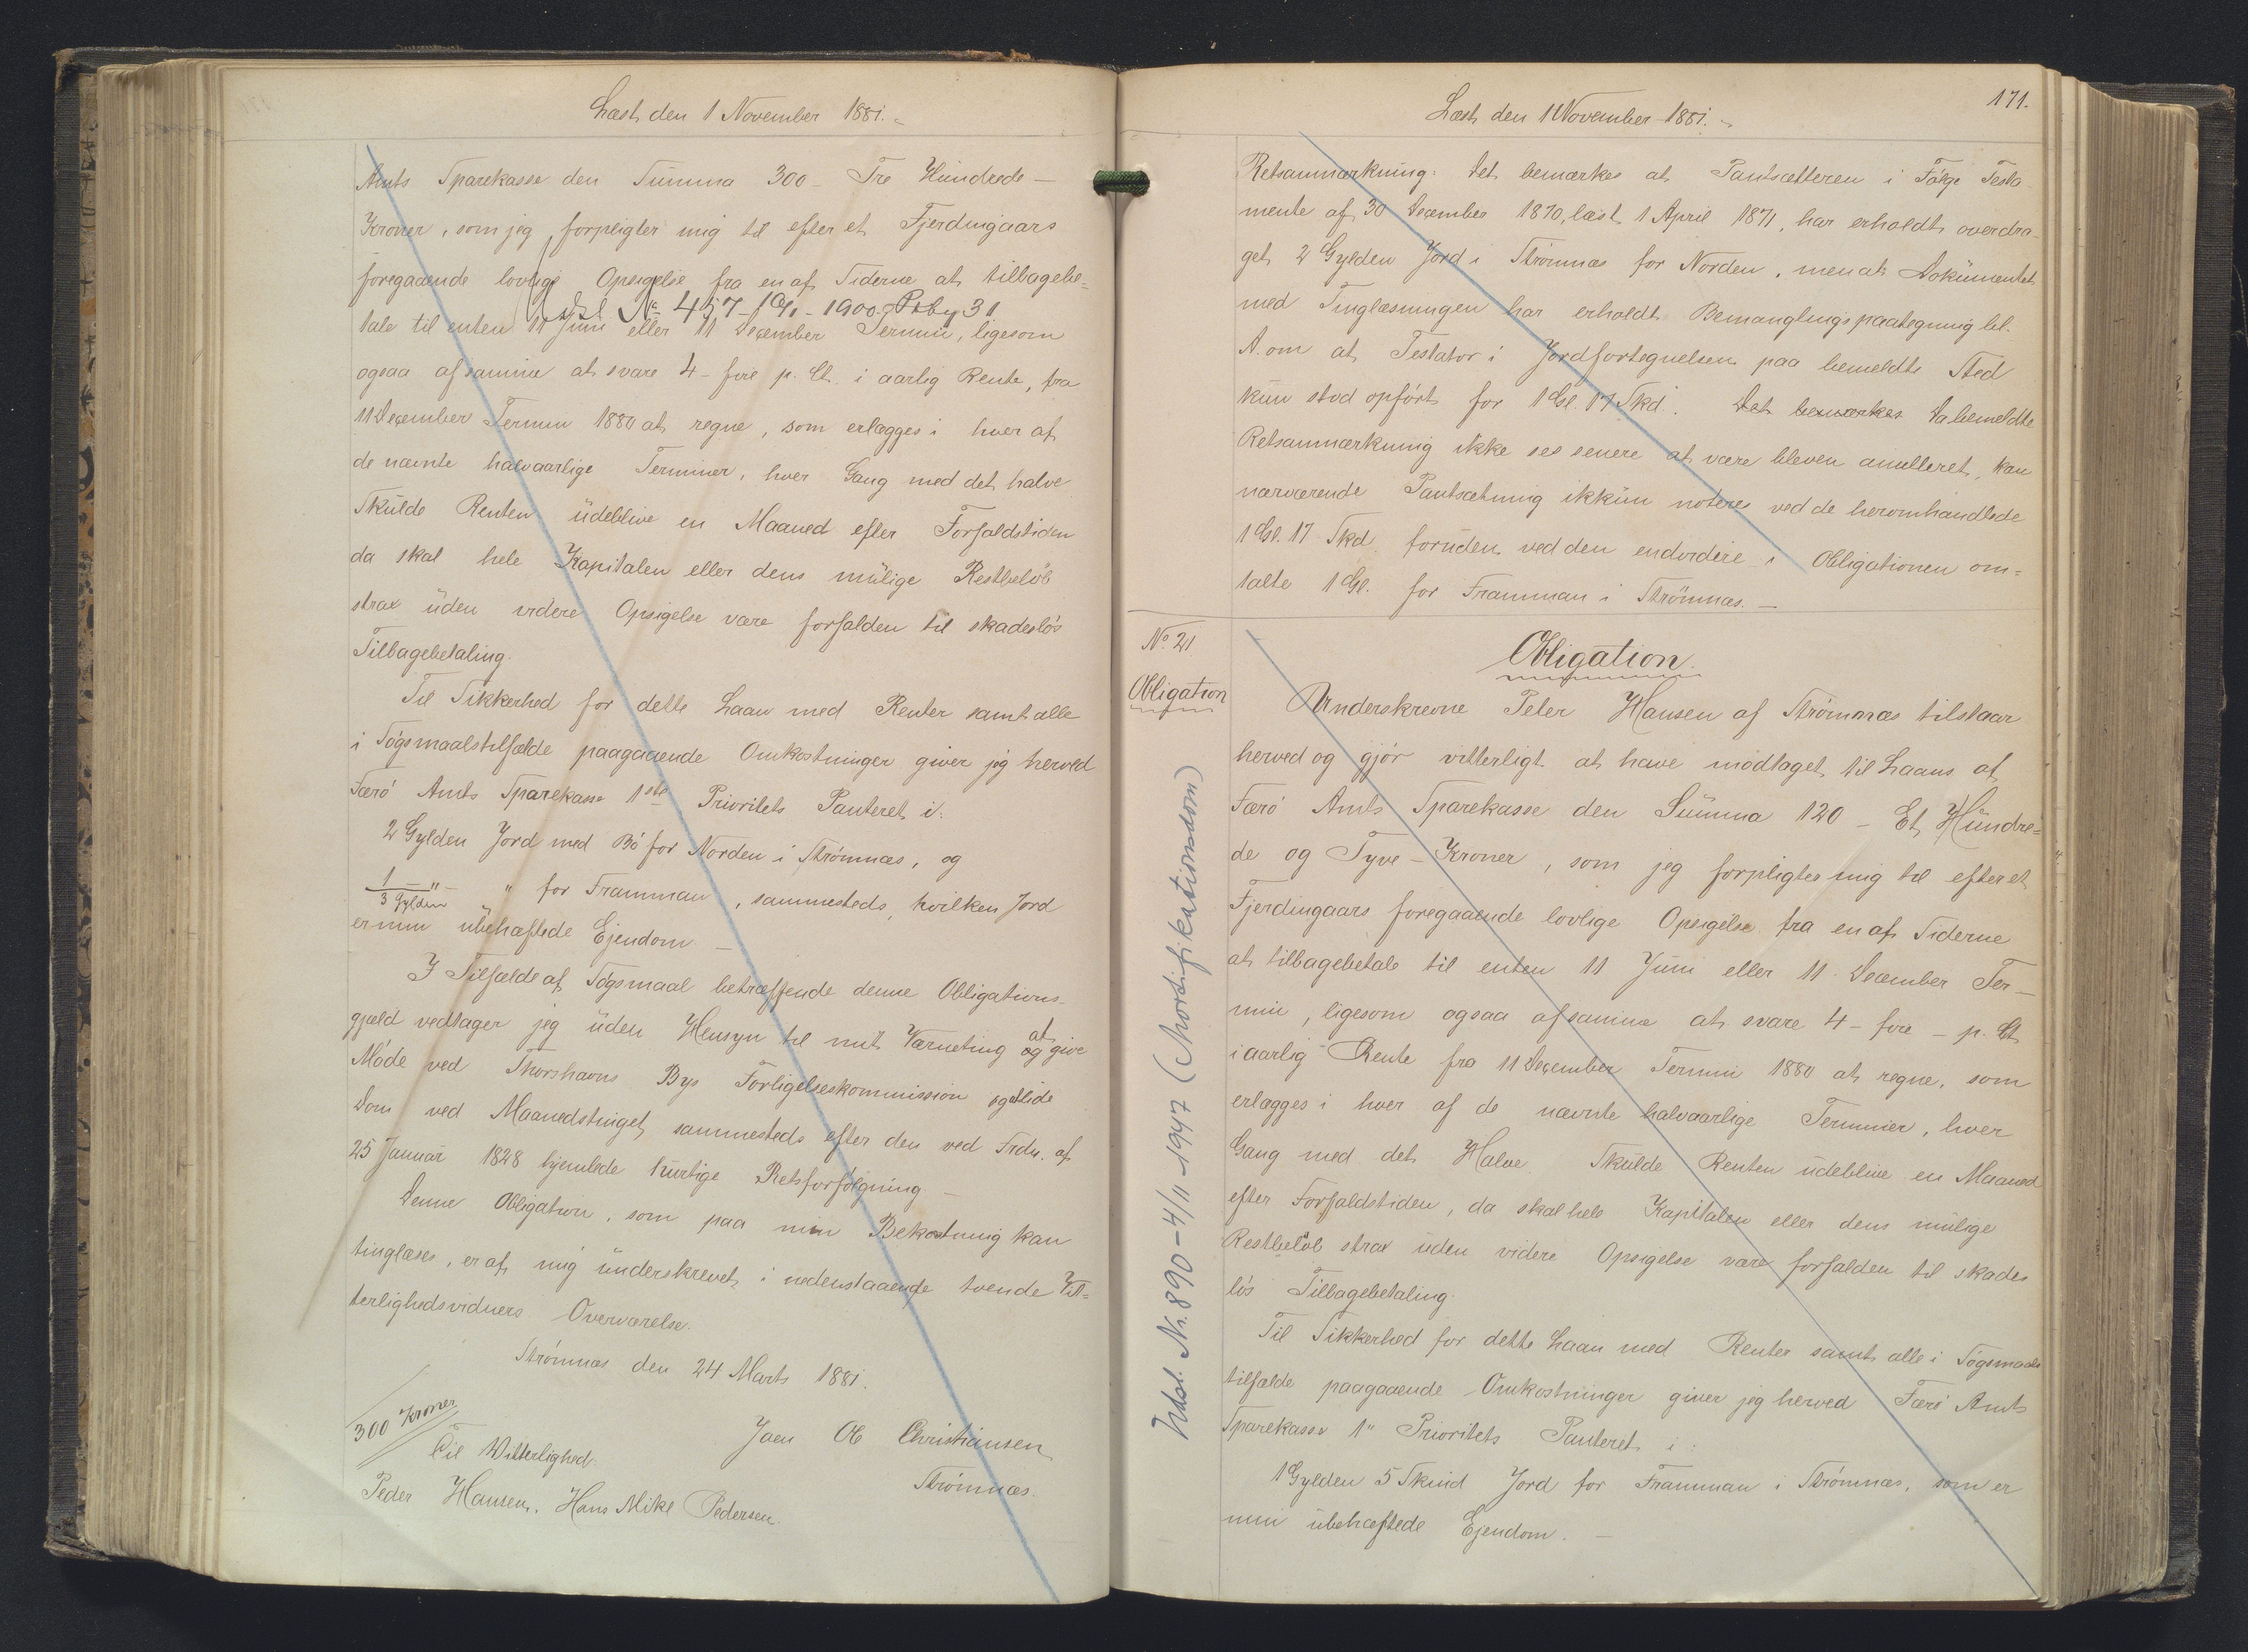 Læst den 1 November 1881.
Amts Sparekasse den Summa 300 – Tre Hundrede –
Kroner, som jeg forpligter mig til efter et Fjerdingaars
foregaaende lovlige Opsigelse fra en af Siderne at tilbagebe=
Udsl No 457 – 1900. Ptby 31
tale til enten 11 Juni eller 11 December Termin, ligesom
ogsaa af samme at svare 4 – fire p. Ct. i aarlig Rente, fra
11 December Termin 1880 at regne, som erlægges i hver af
de nævnte halvaarlige Terminer, hver Gang med det halve
Skulde Renten udeblive en Maaned efter Forfaldstiden
da skal hele Kapitalen eller dens mulige Restbeløb
strax uden videre Opsigelse være forfalden til skadesløs
Tilbagebetaling.
Til Sikkerhed for dette Laan med Renter samt alle
i Søgsmaalstilfælde paagaaende Omkostninger giver jeg herved
Færø Amts Sparekasse 1ste Prioritets Panteret i:
2 Gylden Jord med Bø for Norden i Strømnæs, og
1/3 Gylden – " – " for Framman, sammesteds, hvilken Jord
er min ubehæftede Ejendom –
I Tilfælde af Søgsmaal betræffende denne Obligations-
gjæld vedtager jeg uden Hensyn til mit Værneting at give
Møde ved Thorshavns Bys Forligelseskommission og lide
Dom ved Maanedstinget sammesteds efter den ved Frdn. af
25 Januar 1828 hjemlede hurtige Retsforfølgning –
Denne Obligation, som paa min Bekostning kan
tinglæses, er af mig underskrevet i nedenstaaende tvende Vit=
terlighedsvidners Overværelse.
Strømnæs den 24 Marts 1881.
300 Kroner
Joen Ol Christiansen
Til Vitterlighed:
Strømnæs.
Peder Hansen. Hans Mikl Pedersen.
171.
Læst den 1 November 1881.
Retsanmærkning: Det bemærkes at Pantsætteren i Følge Testa
mente af 30 December 1870, læst 1 April 1871, har erholdt overdra
get 2 Gylden Jord i Strømnæs for Norden, men at Dokumentet
med Tinglæsningen har erholdt Bemanglingspaategning bl.
A. om at Testator i Jordfortegnelsen paa bemeldte Sted
kun stod opført for 1 Gl. 17 Skd. Det bemærkes Da bemeldte
Retsanmærkning ikke ses senere at være bleven anulleret, kan
nærværende Pantsætning ikkun notere ved de heromhandlede
1 Gl. 17 Skd. foruden ved den endvidere i Obligationen om=
talte 1 Gl. for Framman i Strømnæs. –
No. 21.
Obligation
Obligation.
Underskrevne Peter Hansen af Strømnæs tilstaar
herved og gjør vitterligt at have modtaget til Laans af
Færø Amts Sparekasse den Summa 120 – Et Hundre=
de og Tyve – Kroner, som jeg forpligter mig til efter et
Fjerdingaars foregaaende lovlige Opsigelse fra en af Siderne
at tilbagebetale til enten 11 Juni eller 11 December Ter–
min, ligesom ogsaa af samme at svare 4 – fire – p. Ct
i aarlig Rente fra 11 December Termin 1880 at regne, som
erlægges i hver af de nævnte halvaarlige Terminer, hver
Gang med det Halve. Skulde Renten udeblive en Maaned
efter Forfaldstiden, da skal hele Kapitalen eller dens mulige
Restbeløb strax uden videre Opsigelse være forfalden til skades
løs Tilbagebetaling.
Til Sikkerhed for dette Laan med Renter samt alle i Søgsmaals
tilfælde paagaaende Omkostninger giver jeg herved Færø Amts
Sparekasse 1" Prioritets Panteret i:
1 Gylden 5 Skind Jord for Framman i Strømnæs, som er
min ubehæftede Ejendom. –
Udsl. Nr. 890 – 4/11 – 1947 (Mortifikationsdom)